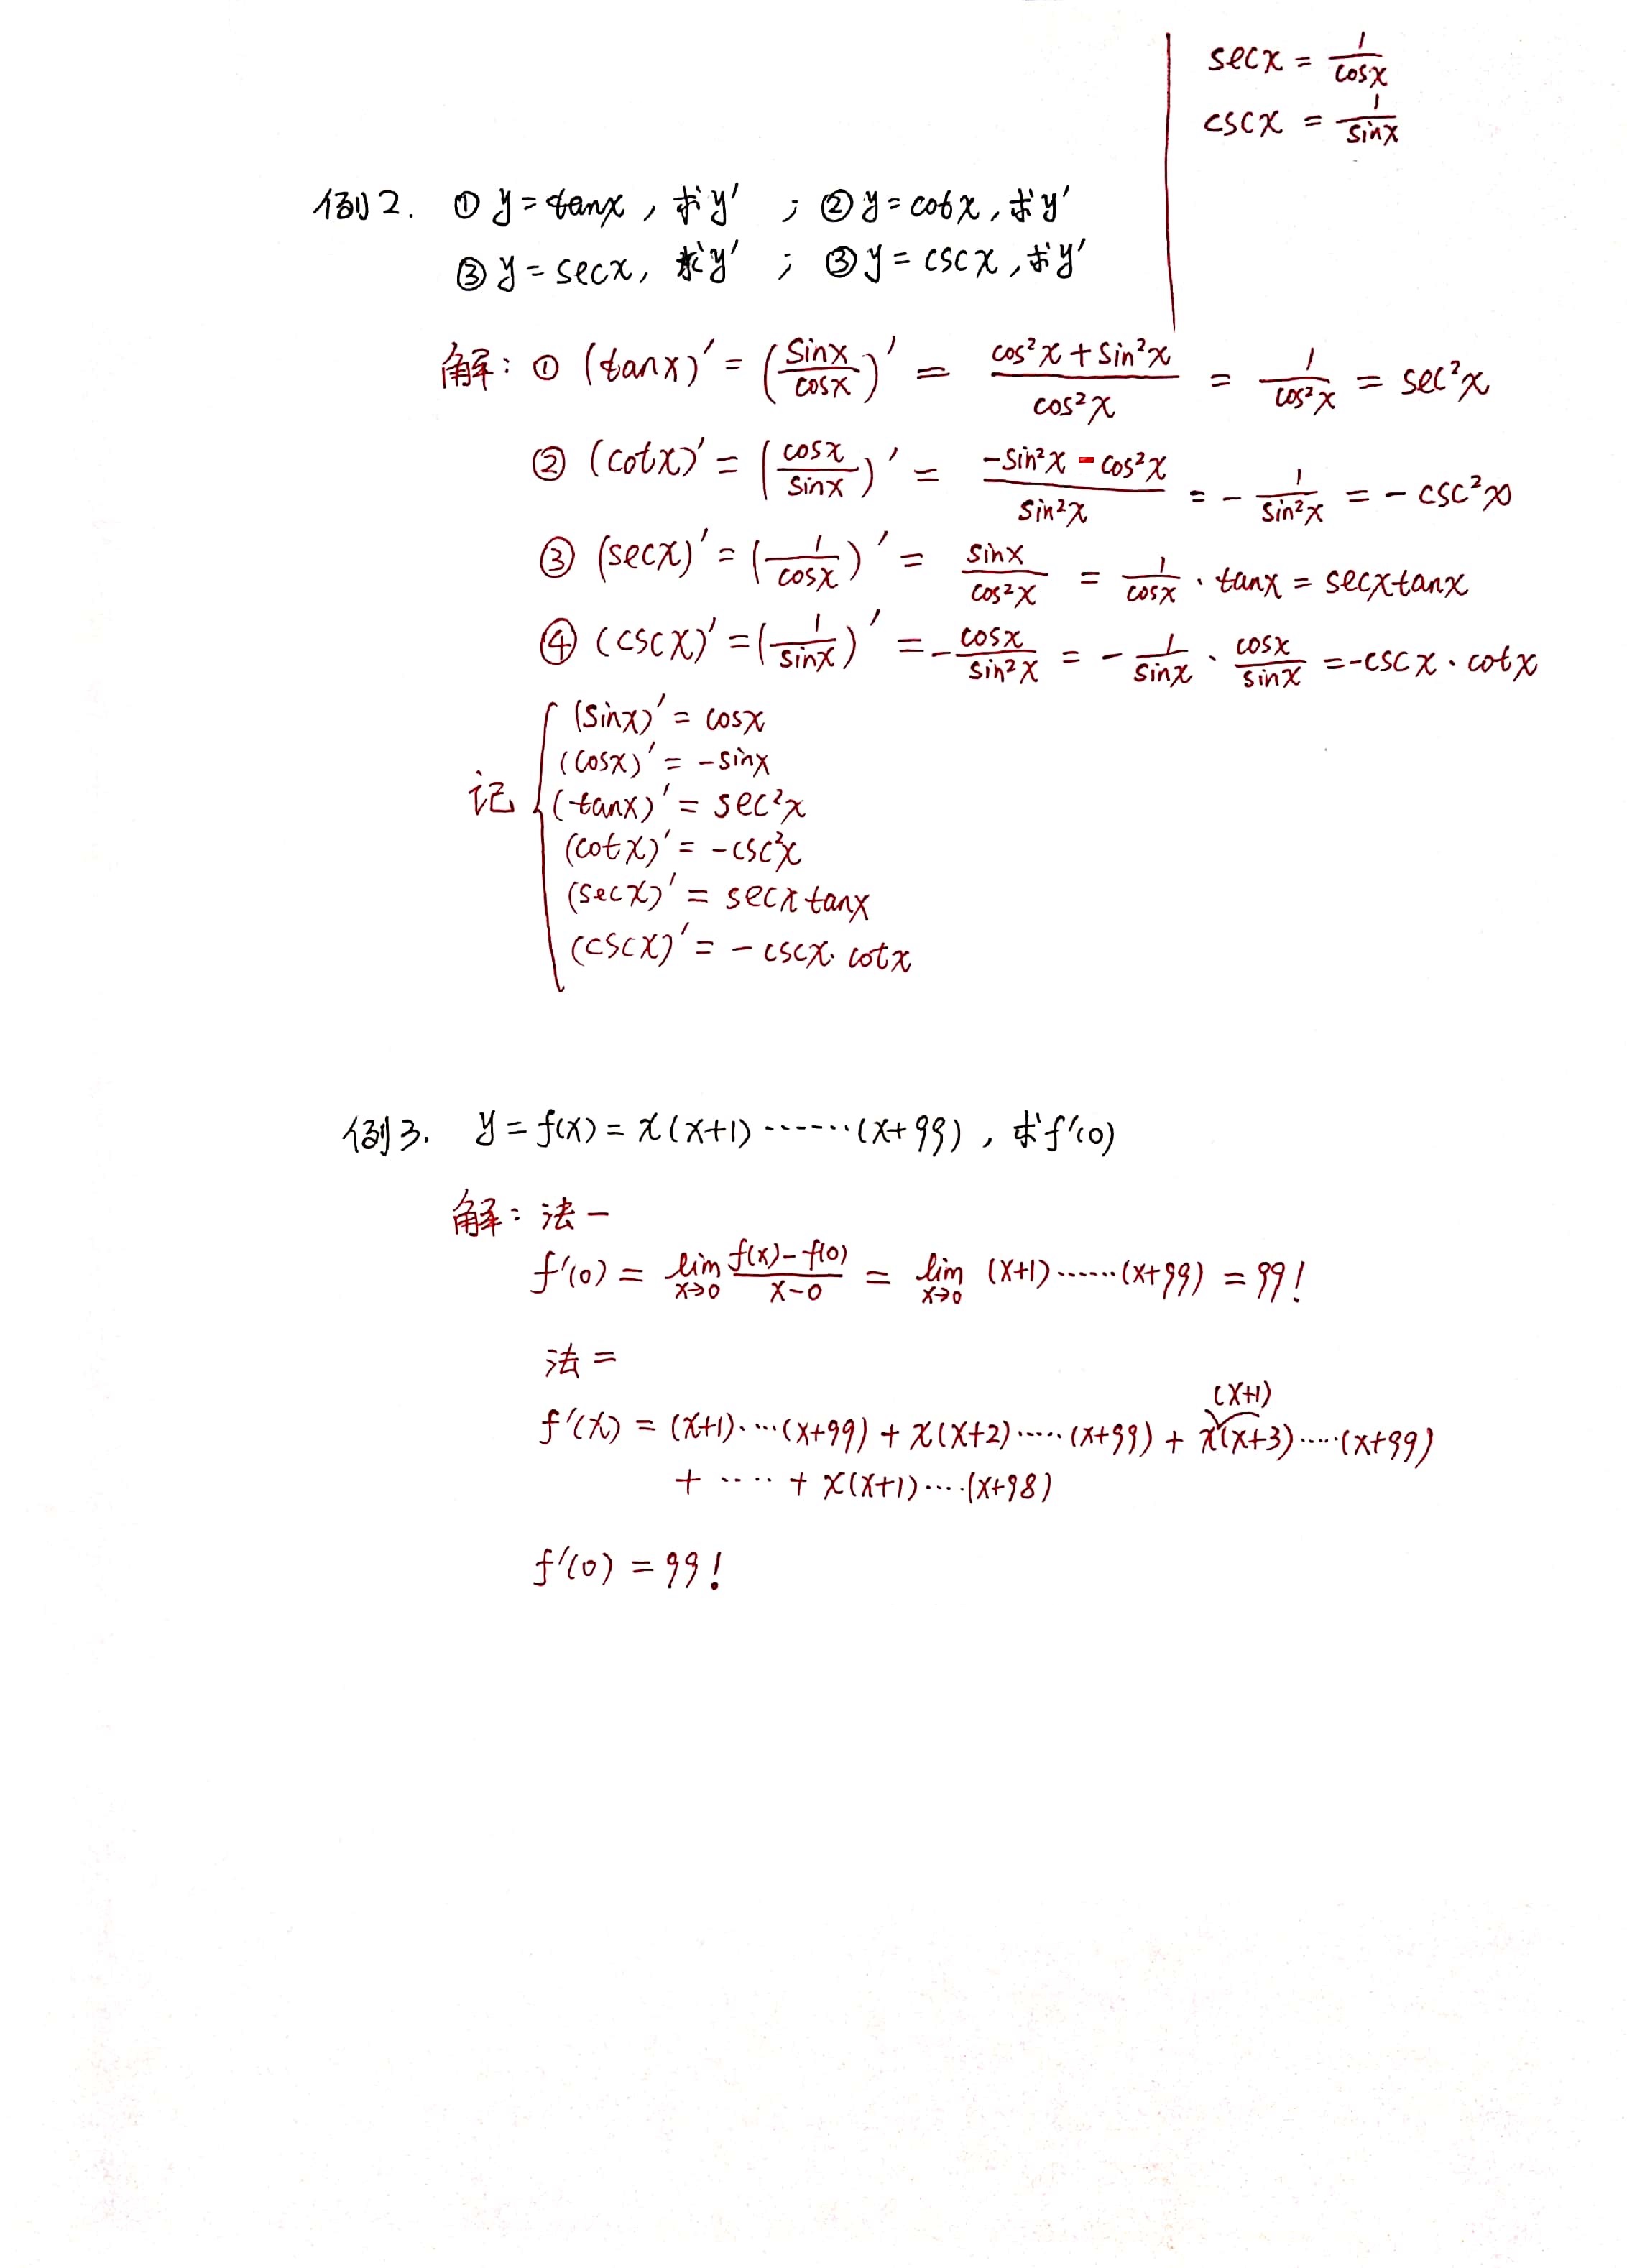 secx = 1/cosx
cscx = 1/sinx
例2. ① y=tanx，求y′ ；② y=cotx，求y′
③ y=secx，求y′ ；③ y=cscx，求y′
解：① (tanx)′ = (sinx/cosx)′ = (cos²x+sin²x)/cos²x = 1/cos²x = sec²x
② (cotx)′ = (cosx/sinx)′ = (-sin²x-cos²x)/sin²x = -1/sin²x = -csc²x
③ (secx)′ = (1/cosx)′ = sinx/cos²x = 1/cosx · tanx = secxtanx
④ (cscx)′ = (1/sinx)′ = -cosx/sin²x = -1/sinx · cosx/sinx = -cscx · cotx
(sinx)′ = cosx
(cosx)′ = -sinx
记 (tanx)′ = sec²x
(cotx)′ = -csc²x
(secx)′ = secxtanx
(cscx)′ = -cscx·cotx
例3. y=f(x)=x(x+1)······(x+99)，求f′(0)
解：法一
f′(0) = lim x→0 (f(x)-f(0))/(x-0) = lim x→0 (x+1)······(x+99) = 99!
法二
(x+1)
f′(x) = (x+1)·····(x+99) + x(x+2)·····(x+99) + x(x+3)·····(x+99)
+ ····· + x(x+1)····(x+98)
f′(0) = 99!